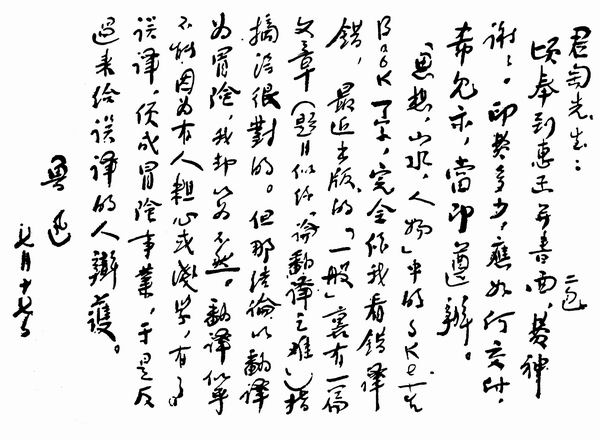 君匋先生:
頃奉到惠函并書面二包,費神
謝謝。印費多少,應如何交付,
希見示,當即遵辦。
「思想,山水,人物」中的Sketch
Book一字,完全係我看錯譯
錯,最近出版的「一般」裏有一篇
文章(題目似係「論翻譯之難」)指
摘得很對的。但那結論以翻譯
為冒險,我却以為不然。翻譯似乎
不能因為有人粗心或淺學,有了
誤譯,便成冒險事業,于是反
過來給誤譯的人辯護。
魯迅
七月十七日